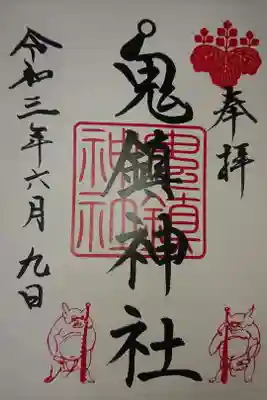 奉拝
鬼鎮神社
鬼鎮神社
令和三年六月九日